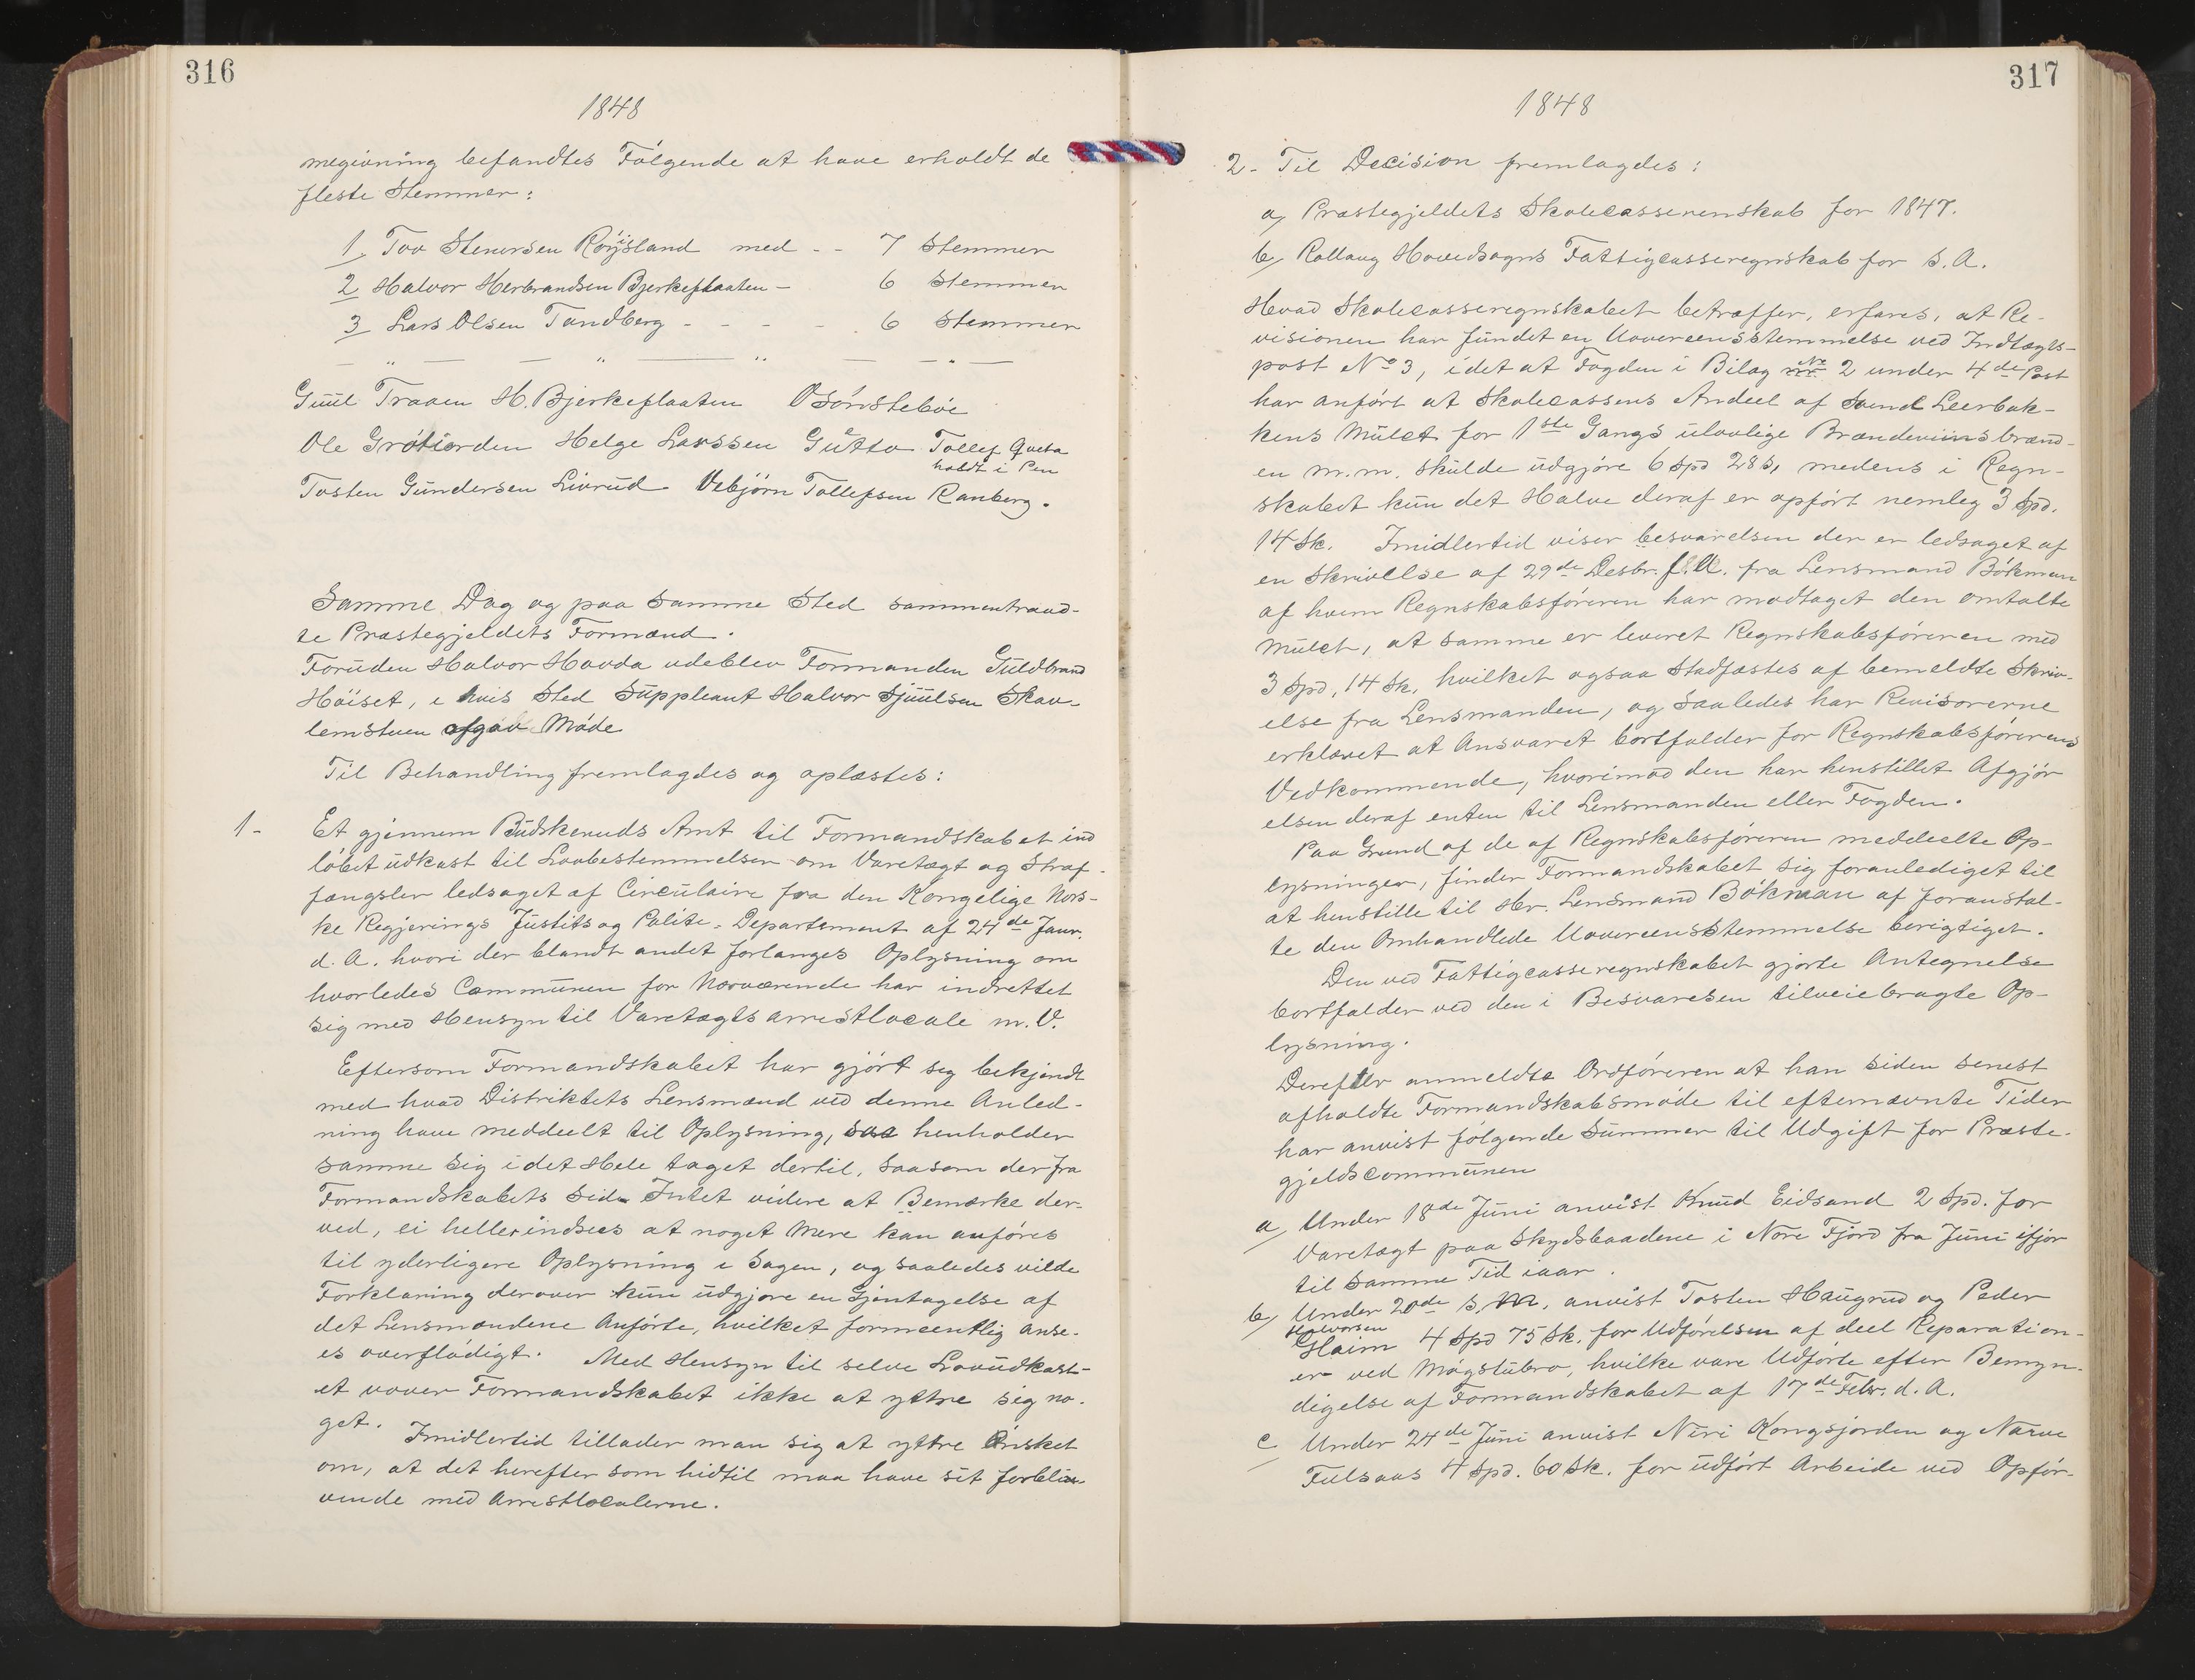 316
1848
megivning befandtes Følgende at have erholdt de
fleste Stemmer:
1, Tov Stenersen Røijsland med - - 7 Stemmer
2 Halvor Herbrandsen Bjerkeflaaten - 6 Stemmer
3 Lars Olsen Tandberg - - - - . 6 Stemmer
Guul Traaen H. Bjerkeflaaten O Sønsteböe
Ole Grötjorden Helge Larssen Gutto Tollef Qvesta
holdt i Pen
Tosten Gundersen Livrud Vebjörn Tollefsen Ranberg.
Samme Dag og paa Samme Sted sammentraad-
te Præstegjeldets Formænd.
Foruden Halvor Hovda udeblev Formanden Guldbrand
Höiset, i hvis Sted Suppleant Halvor Sjuulsen Skav-
lemstuen afgav Möde
Til Behandling fremlagdes og oplæstes:
1- Et gjennem Budskeruds Amt til Formandskabet ind
løbet udkast til Lovbestemmelsen om Varetægt og Straf-
fængsler ledsaget af Circulaire fra den Kongelige Nors-
ke Regjerings Justits og Politie-Departement af 24de Janr.
d. A. hvori der blandt andet forlanges Oplysning om
hvorledes Communen for Nærværende har indrettet
sig med Hensyn til Varetægts arrestlocale m. V.
Eftersom Formandskabet har gjört sig bekjendt
med hvad Distriktets Lensmænd ved denne Anled-
ning have meddeelt til Oplysning, saa henholder
samme sig i det Hele taget dertil, saasom der fra
Formandskabets Side Intet videre at Bemærke der-
ved, ei heller indsees at noget Mere kan anføres
til yderligere Oplysning i Sagen, og saaledes vilde
Forklaring derover kun udgjøre en Gjentagelse af
det Lensmændene Anförte, hvilket formeentlig anse-
es overflödigt. Med Hensyn til selve Lovudkast-
et vover Formandskabet ikke at yttre sig no-
get. Imidlertid tillader man sig at yttre Önsket
om, at det herefter som hidtil maa have sit forbliv-
vende med Arrestlocalerne.
317
1848
2- Til Decision fremlagdes:
a, Præstegjeldets Skolecasserenskab for 1847.
b, Rollaug Hovedsogns Fattigcasseregnskab for S. A.
Hvad Skolecasseregnskabet betræffer, erfares, at Re-
visionen har fundet en Uovereensstemmelse ved Indtægts-
post No 3, idet at Fogden i Bilag No 2 under 4de Post
har anført at Skolecassens Andeel af Svend Leerbak-
kens Mulct for 1ste Gangs ulovlige Brændeviinsbrænd-
en m.m. skulde udgjöre 6 Spd 28 s, medens i Regn-
skabet kun det Halve deraf er opfört nemleg 3 Spd.
14 Sk. Imidlertid viser besvarelsen der er ledsaget af
en Skrivelse af 29de Desbr. f. A. fra Lensmand Bökman
af hvem Regnskabsføreren har modtaget den omtalte
Mulct, at samme er leveret Regnskabsføreren med
3 Spd, 14 Sk, hvilket ogsaa Stadfæstes af bemeldte Skriv-
else fra Lensmanden, og saaledes har Revisorerne
erklæret at Ansvaret bortfalder for Regnskabsförerens
Vedkommende, hvorimod den har henstillet Afgjör
elsen deraf enten til Lensmanden eller Fogden.
Paa Grund af de af Regnskabsføreren meddeelte Op-
lysninger, finder Formandskabet sig foranlediget til
at henstille til Hr. Lensmand Bökman af foranstal-
te den Omhandlede Uovereensstemmelse berigtiget.
Den ved Fattigcasseregnskabet gjorte Antegnelse
bortfalder ved den i Besvarelsen tilveiebragte Op-
lysning.
Derefter anmeldte Ordføreren at han siden senest
afholdte Formandskabsmöde til efternævnte Tider
har anvist fölgende Summer til Udgift for Præste-
gjeldscommunen
a, Under 18de Juni anvist Knud Eidsand 2 Spd. for
Varetægt paa Skydsbaadene i Nore Fjord fra Juni ifjor
til samme Tid iaar.
b, Under 20de s. M. anvist Tosten Haugrud og Peder
Halvorsen
Haim 4 Spd 75 Sk. for Udförelsen af deel Reparation-
er ved Mögstubro, hvilke vare Udförte efter Bemyn-
digelse af Formandskabet af 17de Febr. d. A.
c Under 24de Juni anvist Niri Kongsjorden og Narve
Fulsaas 4 Spd. 60 Sk. for udfört Arbeide ved Opför-